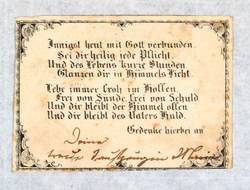 Innigst heut mit Gott verbunden
Sei dir heilig jede Pflicht.
Und des Lebens kurze Stunden
Glänzen dir in Himmels Licht.
Lebe immer froh im Hoffen
Frei von Sünde, frei von Schuld
Und dir bleibt der Himmel offen
Und dir bleibt des Vaters Huld.
Gedenke hierbei an
Deine